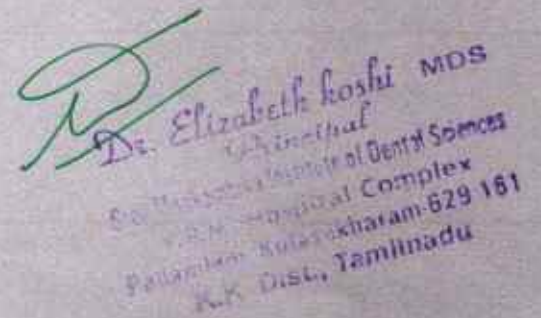 Dr. Elizabeth koshi MDS
Principal
Institute of Dental Sciences
Hospital Complex
Kulasekharam-629 161
K.K Dist., Tamilnadu